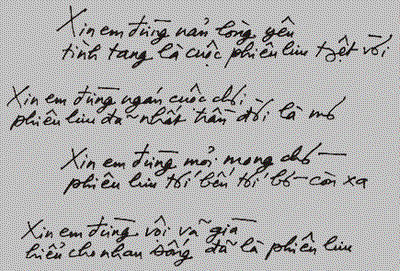 Xin em đừng nản lòng yêu
tình tang là cuộc phiêu lưu tuyệt vời
Xin em đừng ngán cuộc chơi
phiêu lưu đã nhất trần đời là mơ
Xin em đừng mỏi mong chờ
phiêu lưu tới bến tới bờ còn xa
Xin em đừng vội vã già
hiểu cho nhau bỗng đã là phiêu lưu